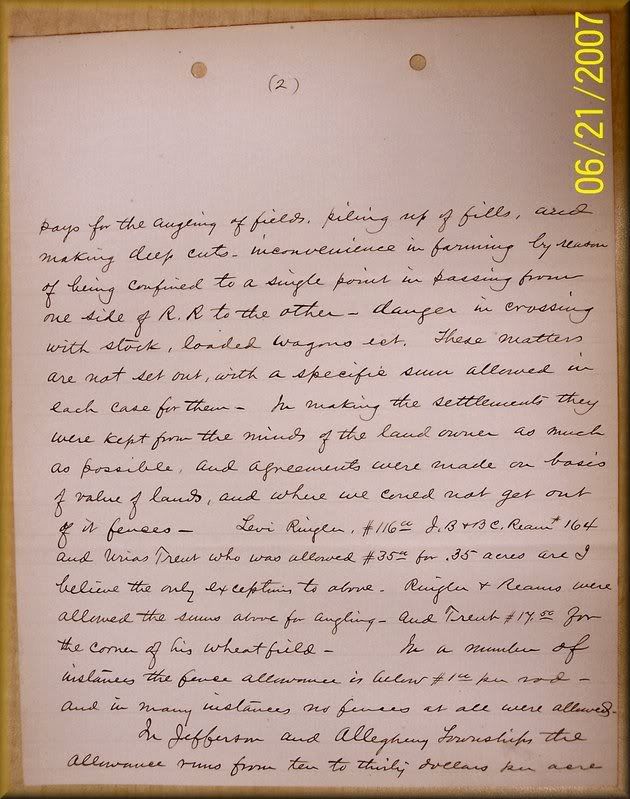 (2)
pays for the angling of fields. piling up of fills, and
making deep cuts - inconvenience in farming by reason
of being confined to a single point in passing from
one side of R.R to the other - danger in crossing
with stock, loaded wagons ect. These matters
are not set out, with a specific sum allowed in
each case for them - In making the settlements they
were kept from the minds of the land owner as much
as possible, and agreements were made on basis
of value of lands, and where we coned not get out
of it fences - Levi Ringler, $116 00 J.B & B C. Ream $ 164
and Urias Trent who was allowed $35 00 for .35 acres are I
believe the only exceptions to above - Ringler & Reams were
allowed the sums above for angling - and Trent $17.50 for
the corner of his wheatfield - In a number of
instances the fence allowance is below $1 00 per rod -
and in many instances no fences at all were allowed -
In Jefferson and Allegheny Townships the
allowance runs from ten to thirty dollars per acre
06/21/2007